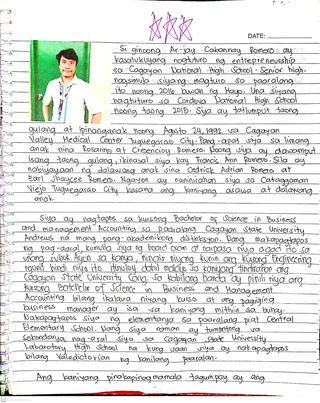 DATE:
Si ginoong Ar-jay Cabannay Romero ay
kasalukuyang nagtuturo ng entrepreneurship
sa Cagayan National High School-Senior high.
Nagsimula siyang magturo sa paaralang
ito noong 2016 buwan ng Mayo. Una siyang
nagturo sa Cordova National High School
noong taong 2015. Siya ay tatlumput taong
gulang at ipinanganak noong Agosto 29, 1992 sa Cagayan
Valley Medical Center Tuguegarao City. Pang-apat siya sa limang
anak nina Rosalina at Cresencio Romero. Noong siya ay dalawamput
isang taong gulang, ikinasal siya kay Francis Ann Romero. Sila ay
nabiyayaan ng dalawang anak sina Cedrick Adrian Romero at
Earl Jhaycee Romero. Nga-yon ay naninirahan siya sa Cataggaman
Viejo Tuguegarao City kasama ang kaniyang asawa at dalawang
anak.
Siya ay nagtapos sa kursong Bachelor of Science in Business
and management Accounting sa paaralang Cagayan State University
Andrews na mang pang-akademikong distinksiyon. Nang makapagtapos
ng pag-aaral, kumuha siya ng board exam at naipasa niya agad ito sa
unang subok. Ayon sa kaniya, ninais niyang kunin ang kursong Engineering
ngunit hindi niya ito itinuloy dahil malayo sa kaniyang tinitirahan ang
Cagayan State University Carig. Sa kabilang banda ay pinili niya ang
kursong Batchelor of Science in Business and Management
Accounting bilang ikalawa niyang kurso at ang pagiging
business manager ay isa sa kaniyang mithiin sa buhay.
Nakapagtapos siya ng elementarya sa paaralang Piat Central
Elementary School. Nang siya naman ay tumuntong sa
sekondarya, nag-aral siya sa Cagayan State University
Laboratory High School na kung saan siya ay nakapagtapos
bilang Valedictorian ng kanilang paaralan.
Ang kaniyang pinakapinagmamalaking tagumpay ay ang